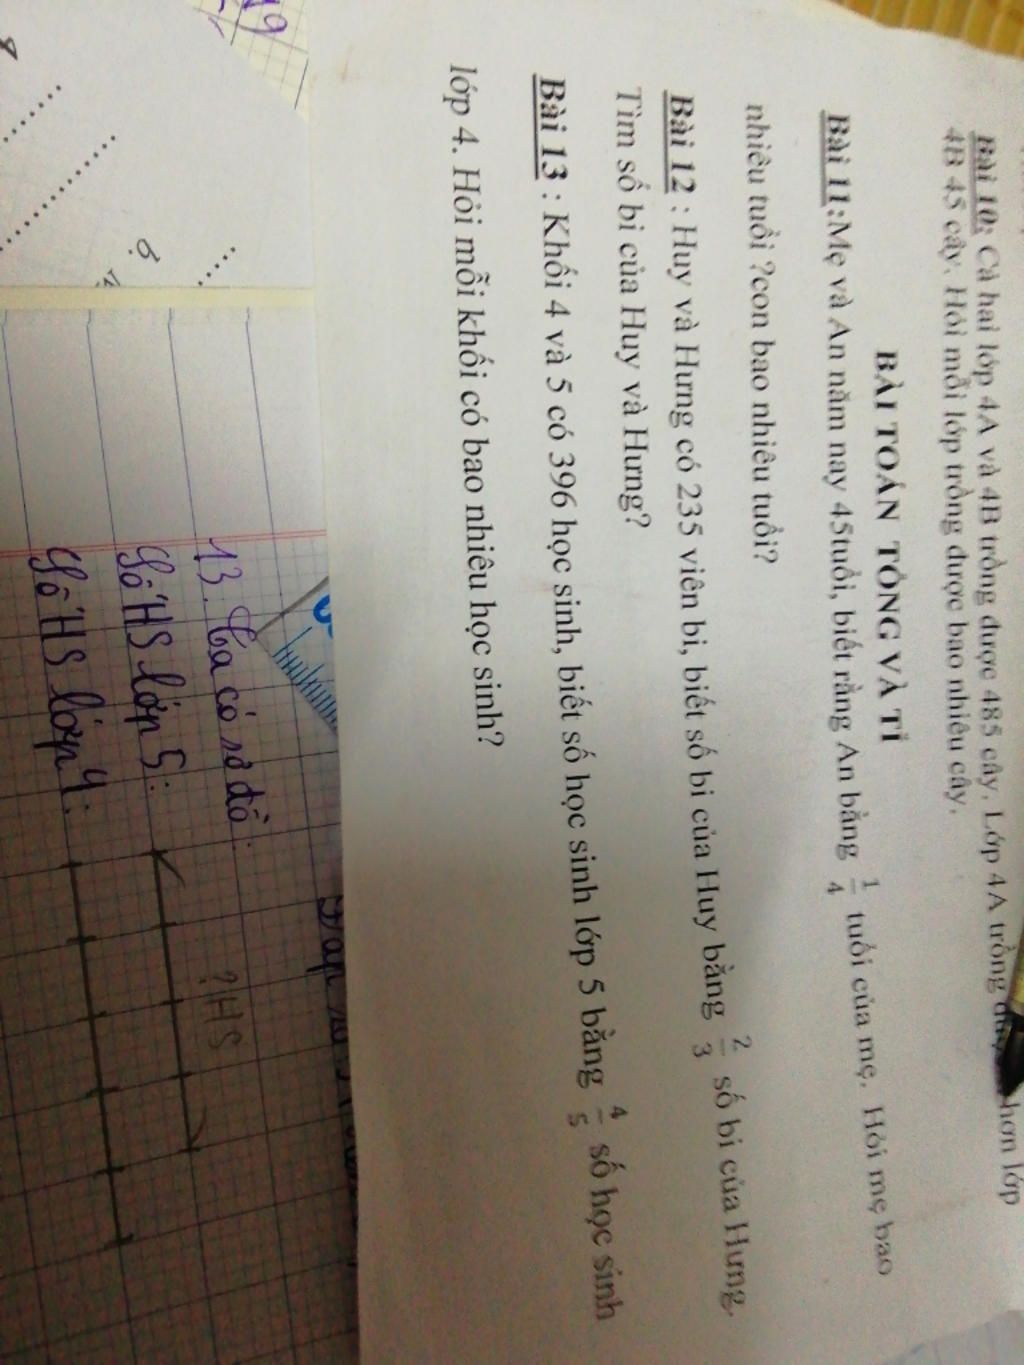 Bài 10: Cả hai lớp 4A và 4B trồng được 485 cây. Lớp 4A trồng hơn lớp
4B 45 cây. Hỏi mỗi lớp trồng được bao nhiêu cây.
BÀI TOÁN TỔNG VÀ TỈ
Bài 11:Mẹ và An năm nay 45tuổi, biết rằng An bằng 1/4 tuổi của mẹ. Hỏi mẹ bao
nhiêu tuổi ?con bao nhiêu tuổi?
Bài 12 : Huy và Hưng có 235 viên bi, biết số bi của Huy bằng 2/3 số bi của Hưng.
Tìm số bi của Huy và Hưng?
Bài 13 : Khối 4 và 5 có 396 học sinh, biết số học sinh lớp 5 bằng 4/5 số học sinh
lớp 4. Hỏi mỗi khối có bao nhiêu học sinh?
13. Ta có sơ đồ:
?HS
Số HS lớp 5:
Số HS lớp 4: